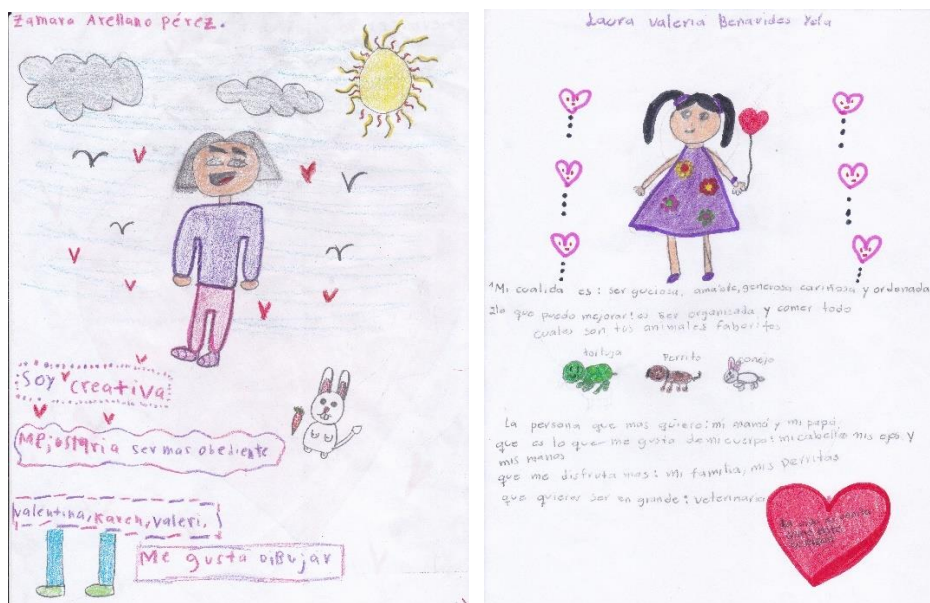 Zamara Arellano Pérez.
Soy creativa
Me jostaria ser mas obediente
Valentina, Karen, Valeri,
Me gusta DiBujar
Laura Valeria Benavides
1Mi cualida es: ser guciosa, amable, generosa cariñosa y ordenada
2lo que puedo mejorar: es ser organizada y comer todo
cuales son tus animales faboritos
tortuja Perrito conejo
La persona que mas quiero: mi mamá y mi papá
que es lo que me gusta de mi cuerpo: mi cabello mis ojos y
mis manos
que me disfruta mas: mi familia, mis perritos
que quieres ser en grande: veterinaria